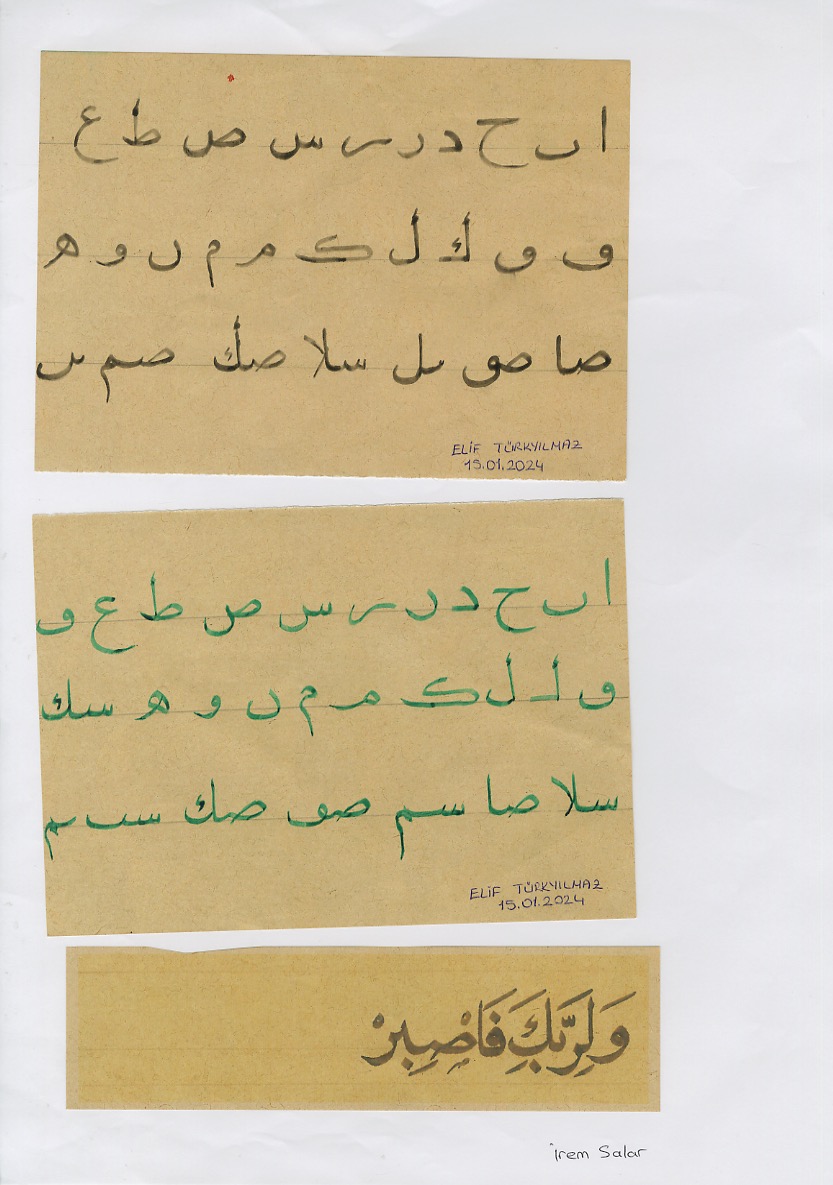 ا ں ح د ر ر س ص ط ع
ف ٯ ك ل ک م م ں و ه
صا صو ىل سلا صك صم ىں
ELİF TÜRKYILMAZ
15.01.2024
ا ں ح د ر ر س ص ط ع ف
ٯ ل ک م م ں و ه سك
سلا صا سم صو صك سب ىم
ELİF TÜRKYILMAZ
15.01.2024
وَلِرَبِّكَ فَاصْبِرْ
İrem Salar